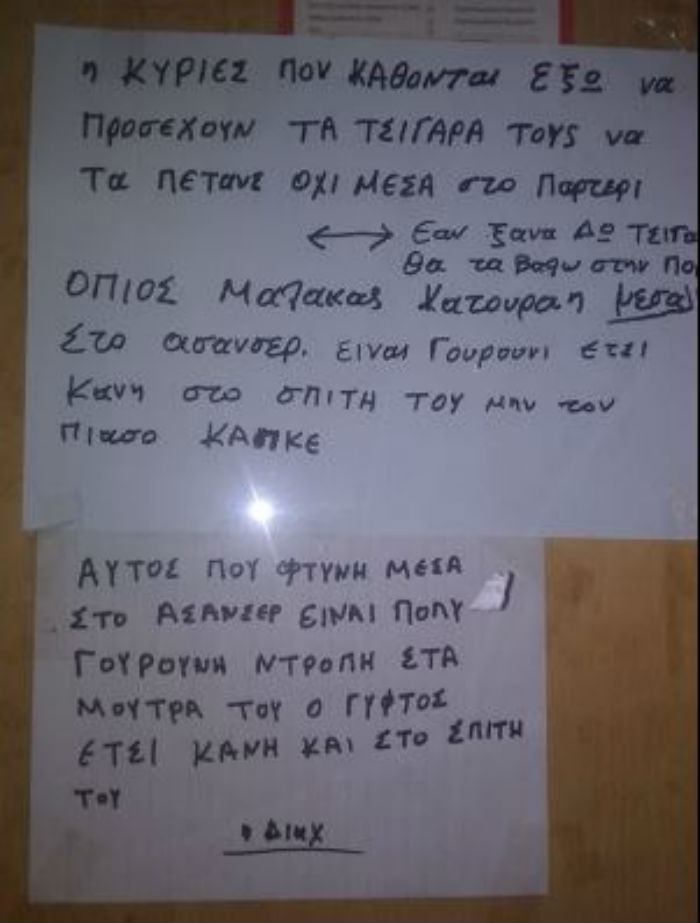 η ΚΥΡΙΕΣ ΠΟΥ ΚΑΘΟΝΤΑΙ ΕΞΩ να
ΠΡΟΣΕΧΟΥΝ ΤΑ ΤΣΙΓΑΡΑ ΤΟΥΣ να
Τα ΠΕΤΑΝΕ ΟΧΙ ΜΕΣΑ στο Παρτερι
Εαν ξανα Δω ΤΣΙΓΑ
Θα τα βαψω στην Πο
ΟΠΙΟΣ Μαλακας Κατουραη μεσα
Στο ασανσερ. ειναι Γουρουνι ετσι
Κανη στο σπιτη ΤΟΥ μην τον
Πιασο ΚΑΠΚΕ
ΑΥΤΟΣ ΠΟΥ ΦΤΥΝΗ ΜΕΣΑ
ΣΤΟ ΑΣΑΝΣΕΡ ΕΙΝΑΙ ΠΟΛΥ
ΓΟΥΡΟΥΝΗ ΝΤΡΟΠΗ ΣΤΑ
ΜΟΥΤΡΑ ΤΟΥ Ο ΓΥΦΤΟΣ
ΕΤΣΙ ΚΑΝΗ ΚΑΙ ΣΤΟ ΣΠΙΤΗ
ΤΟΥ
η Διαχ